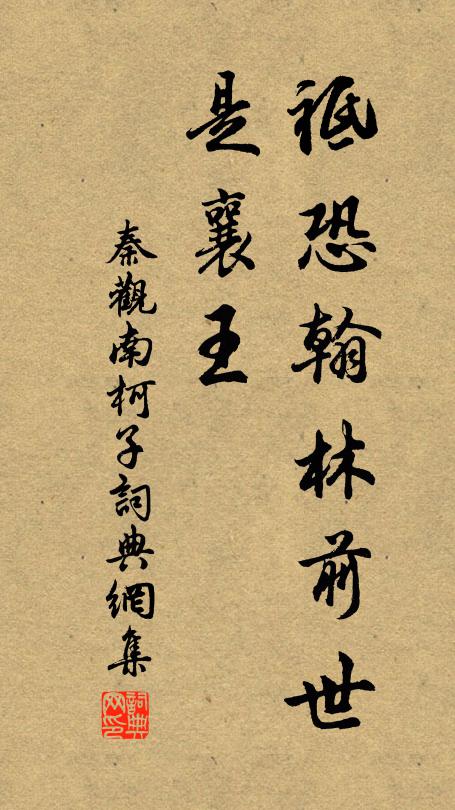 祗恐翰林前世
是襄王
秦觀南柯子詞典網集
詞典網印